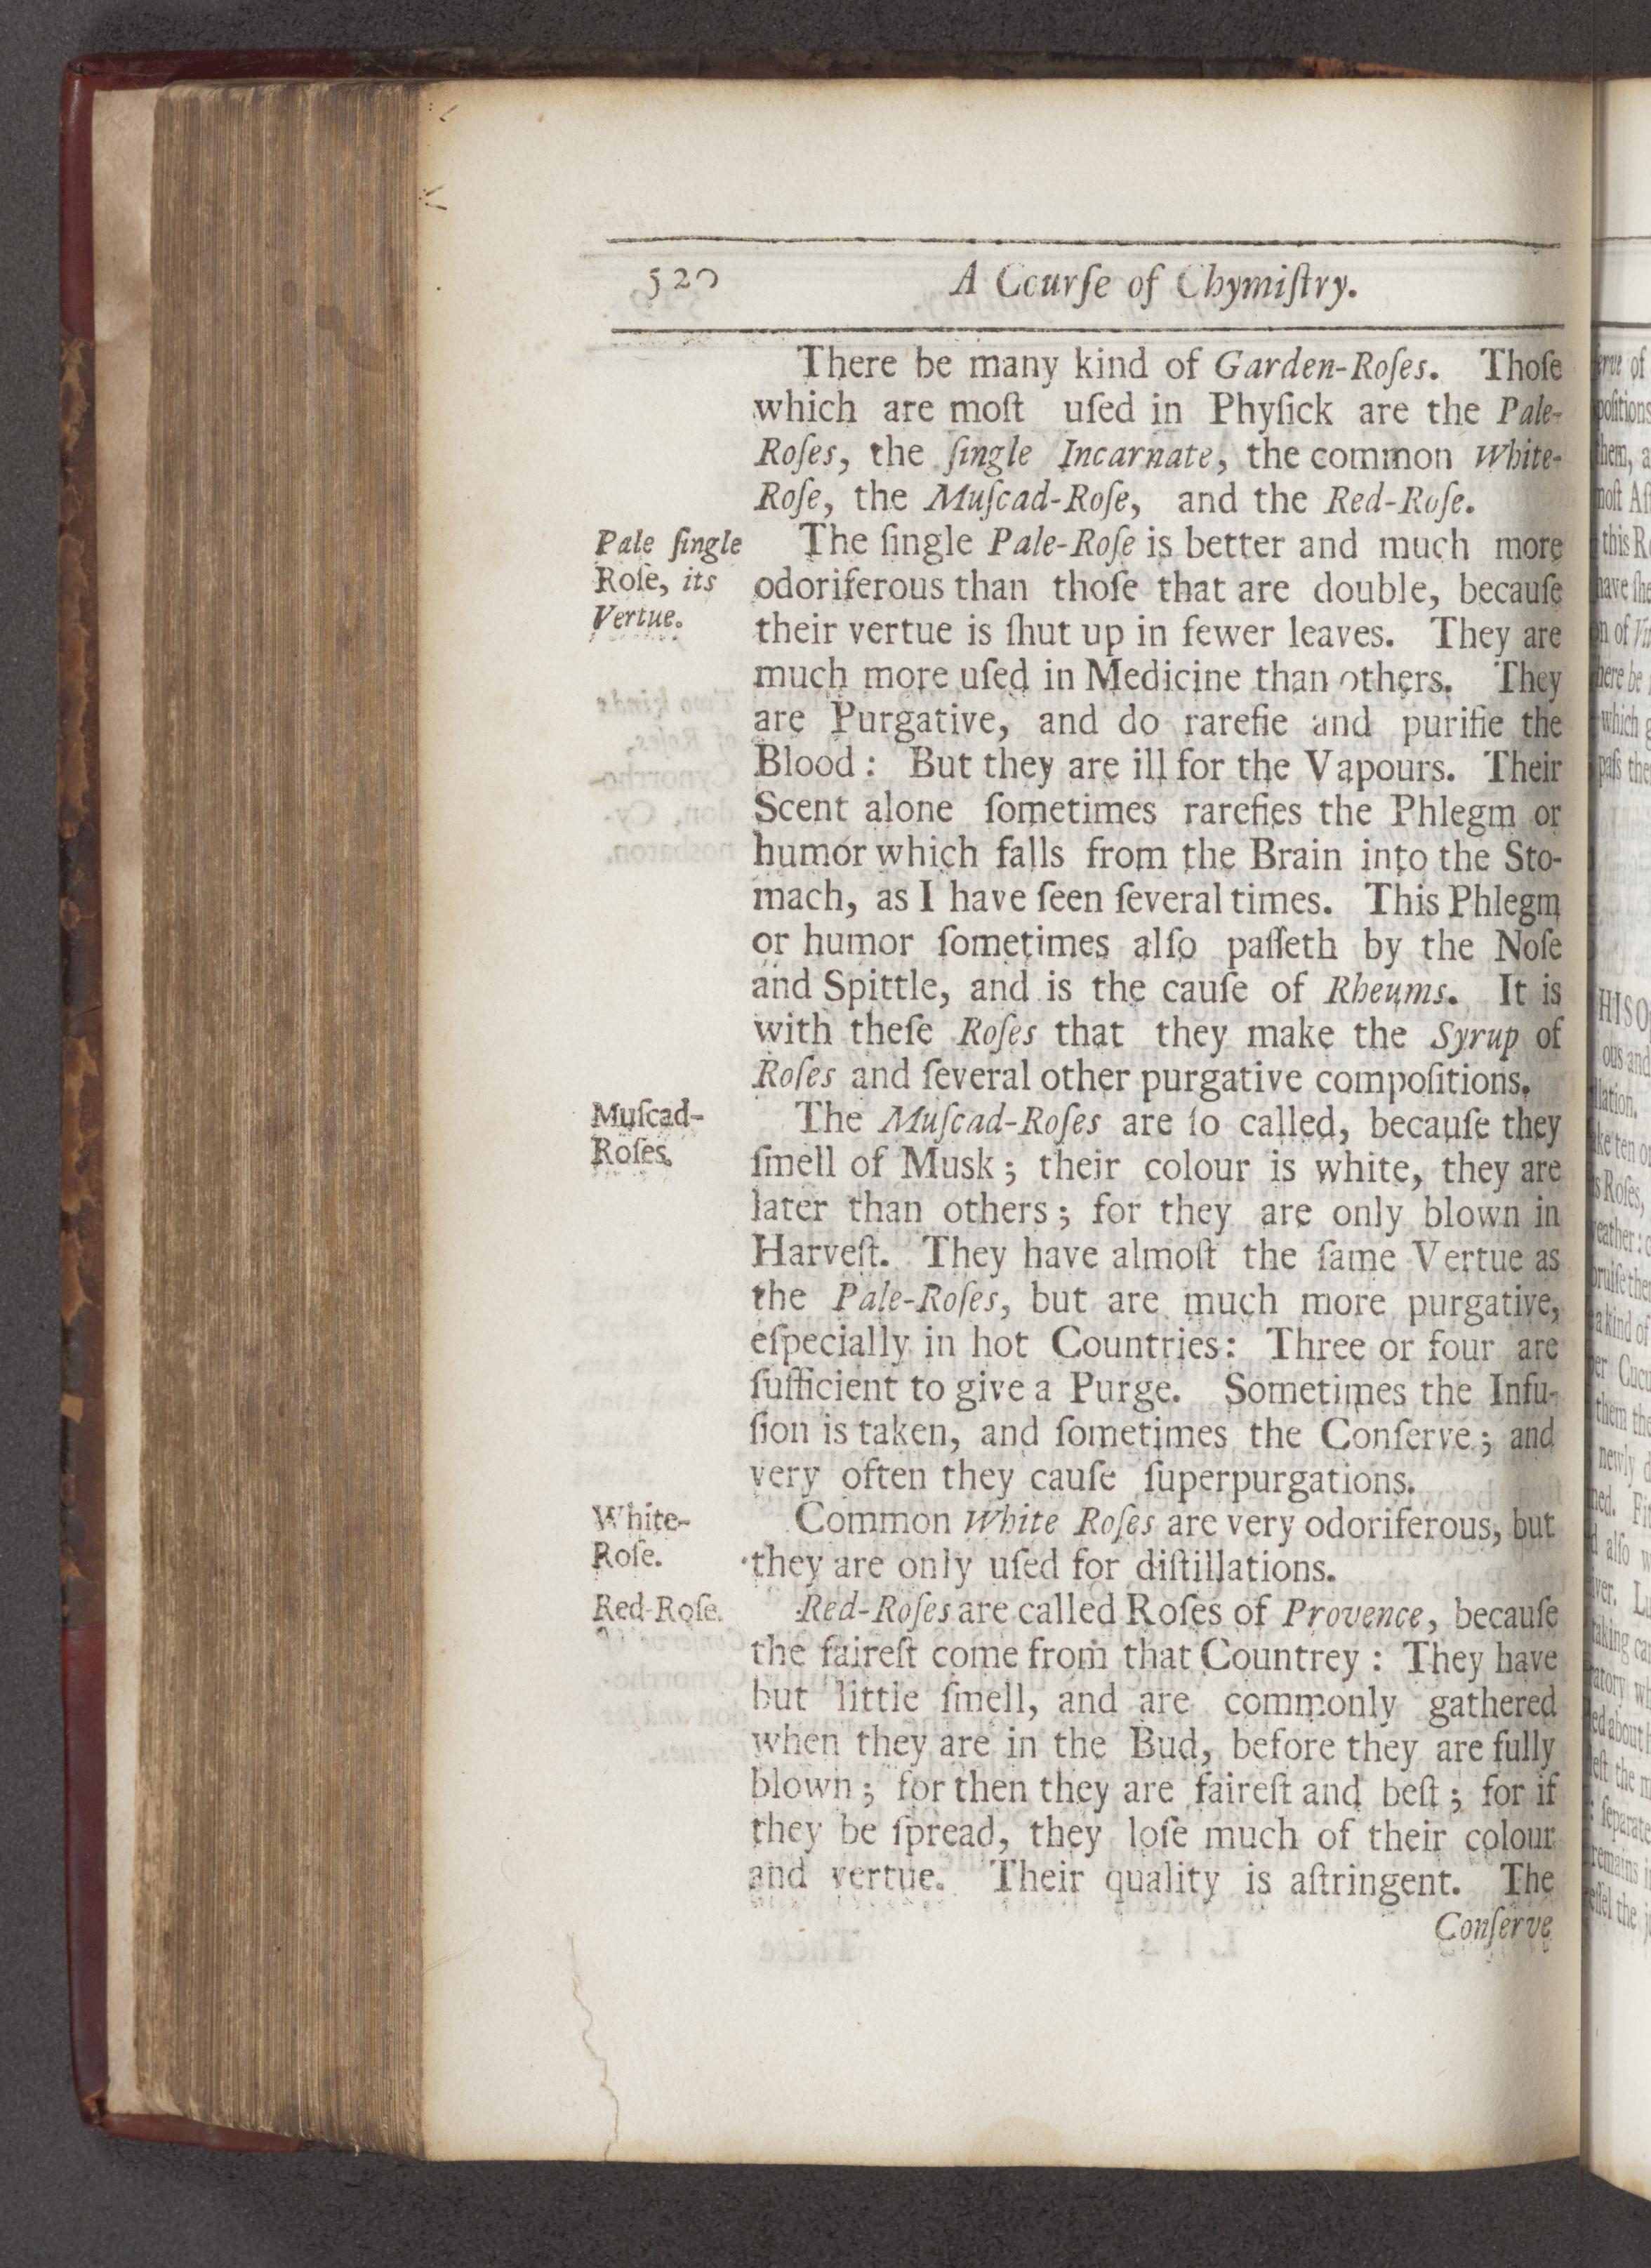 520 A Courſe of Chymiſtry.
There be many kind of Garden-Roſes. Thoſe
which are moſt uſed in Phyſick are the Pale-
Roſes, the ſingle Incarnate, the common White-
Roſe, the Muſcad-Roſe, and the Red-Roſe.
Pale ſingle
Roſe, its
Vertue.
The ſingle Pale-Roſe is better and much more
odoriferous than thoſe that are double, becauſe
their vertue is ſhut up in fewer leaves. They are
much more uſed in Medicine than others. They
are Purgative, and do rarefie and purifie the
Blood: But they are ill for the Vapours. Their
Scent alone ſometimes rarefies the Phlegm or
humor which falls from the Brain into the Sto-
mach, as I have ſeen ſeveral times. This Phlegm
or humor ſometimes alſo paſſeth by the Noſe
and Spittle, and is the cauſe of Rheums. It is
with theſe Roſes that they make the Syrup of
Roſes and ſeveral other purgative compoſitions.
Muſcad-
Roſes.
The Muſcad-Roſes are ſo called, becauſe they
ſmell of Musk; their colour is white, they are
later than others; for they are only blown in
Harveſt. They have almoſt the ſame Vertue as
the Pale-Roſes, but are much more purgative,
eſpecially in hot Countries: Three or four are
ſufficient to give a Purge. Sometimes the Infu-
ſion is taken, and ſometimes the Conſerve; and
very often they cauſe ſuperpurgations.
White-
Roſe.
Common White Roſes are very odoriferous, but
they are only uſed for diſtillations.
Red-Roſe.
Red-Roſes are called Roſes of Provence, becauſe
the faireſt come from that Countrey: They have
but little ſmell, and are commonly gathered
when they are in the Bud, before they are fully
blown; for then they are faireſt and beſt; for if
they be ſpread, they loſe much of their colour
and vertue. Their quality is aſtringent. The
Conſerve